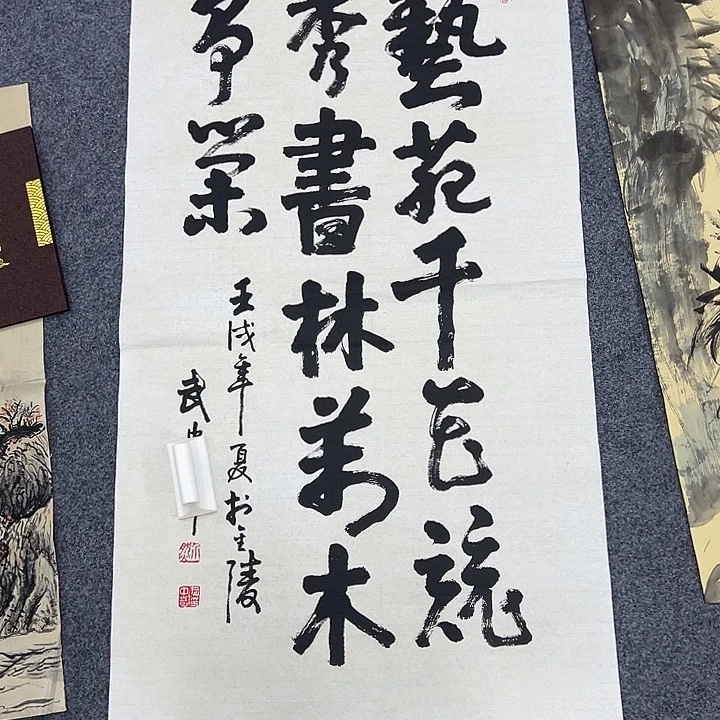 藝苑千花競
秀書林萬木
爭榮
壬戌年夏於金陵
武中